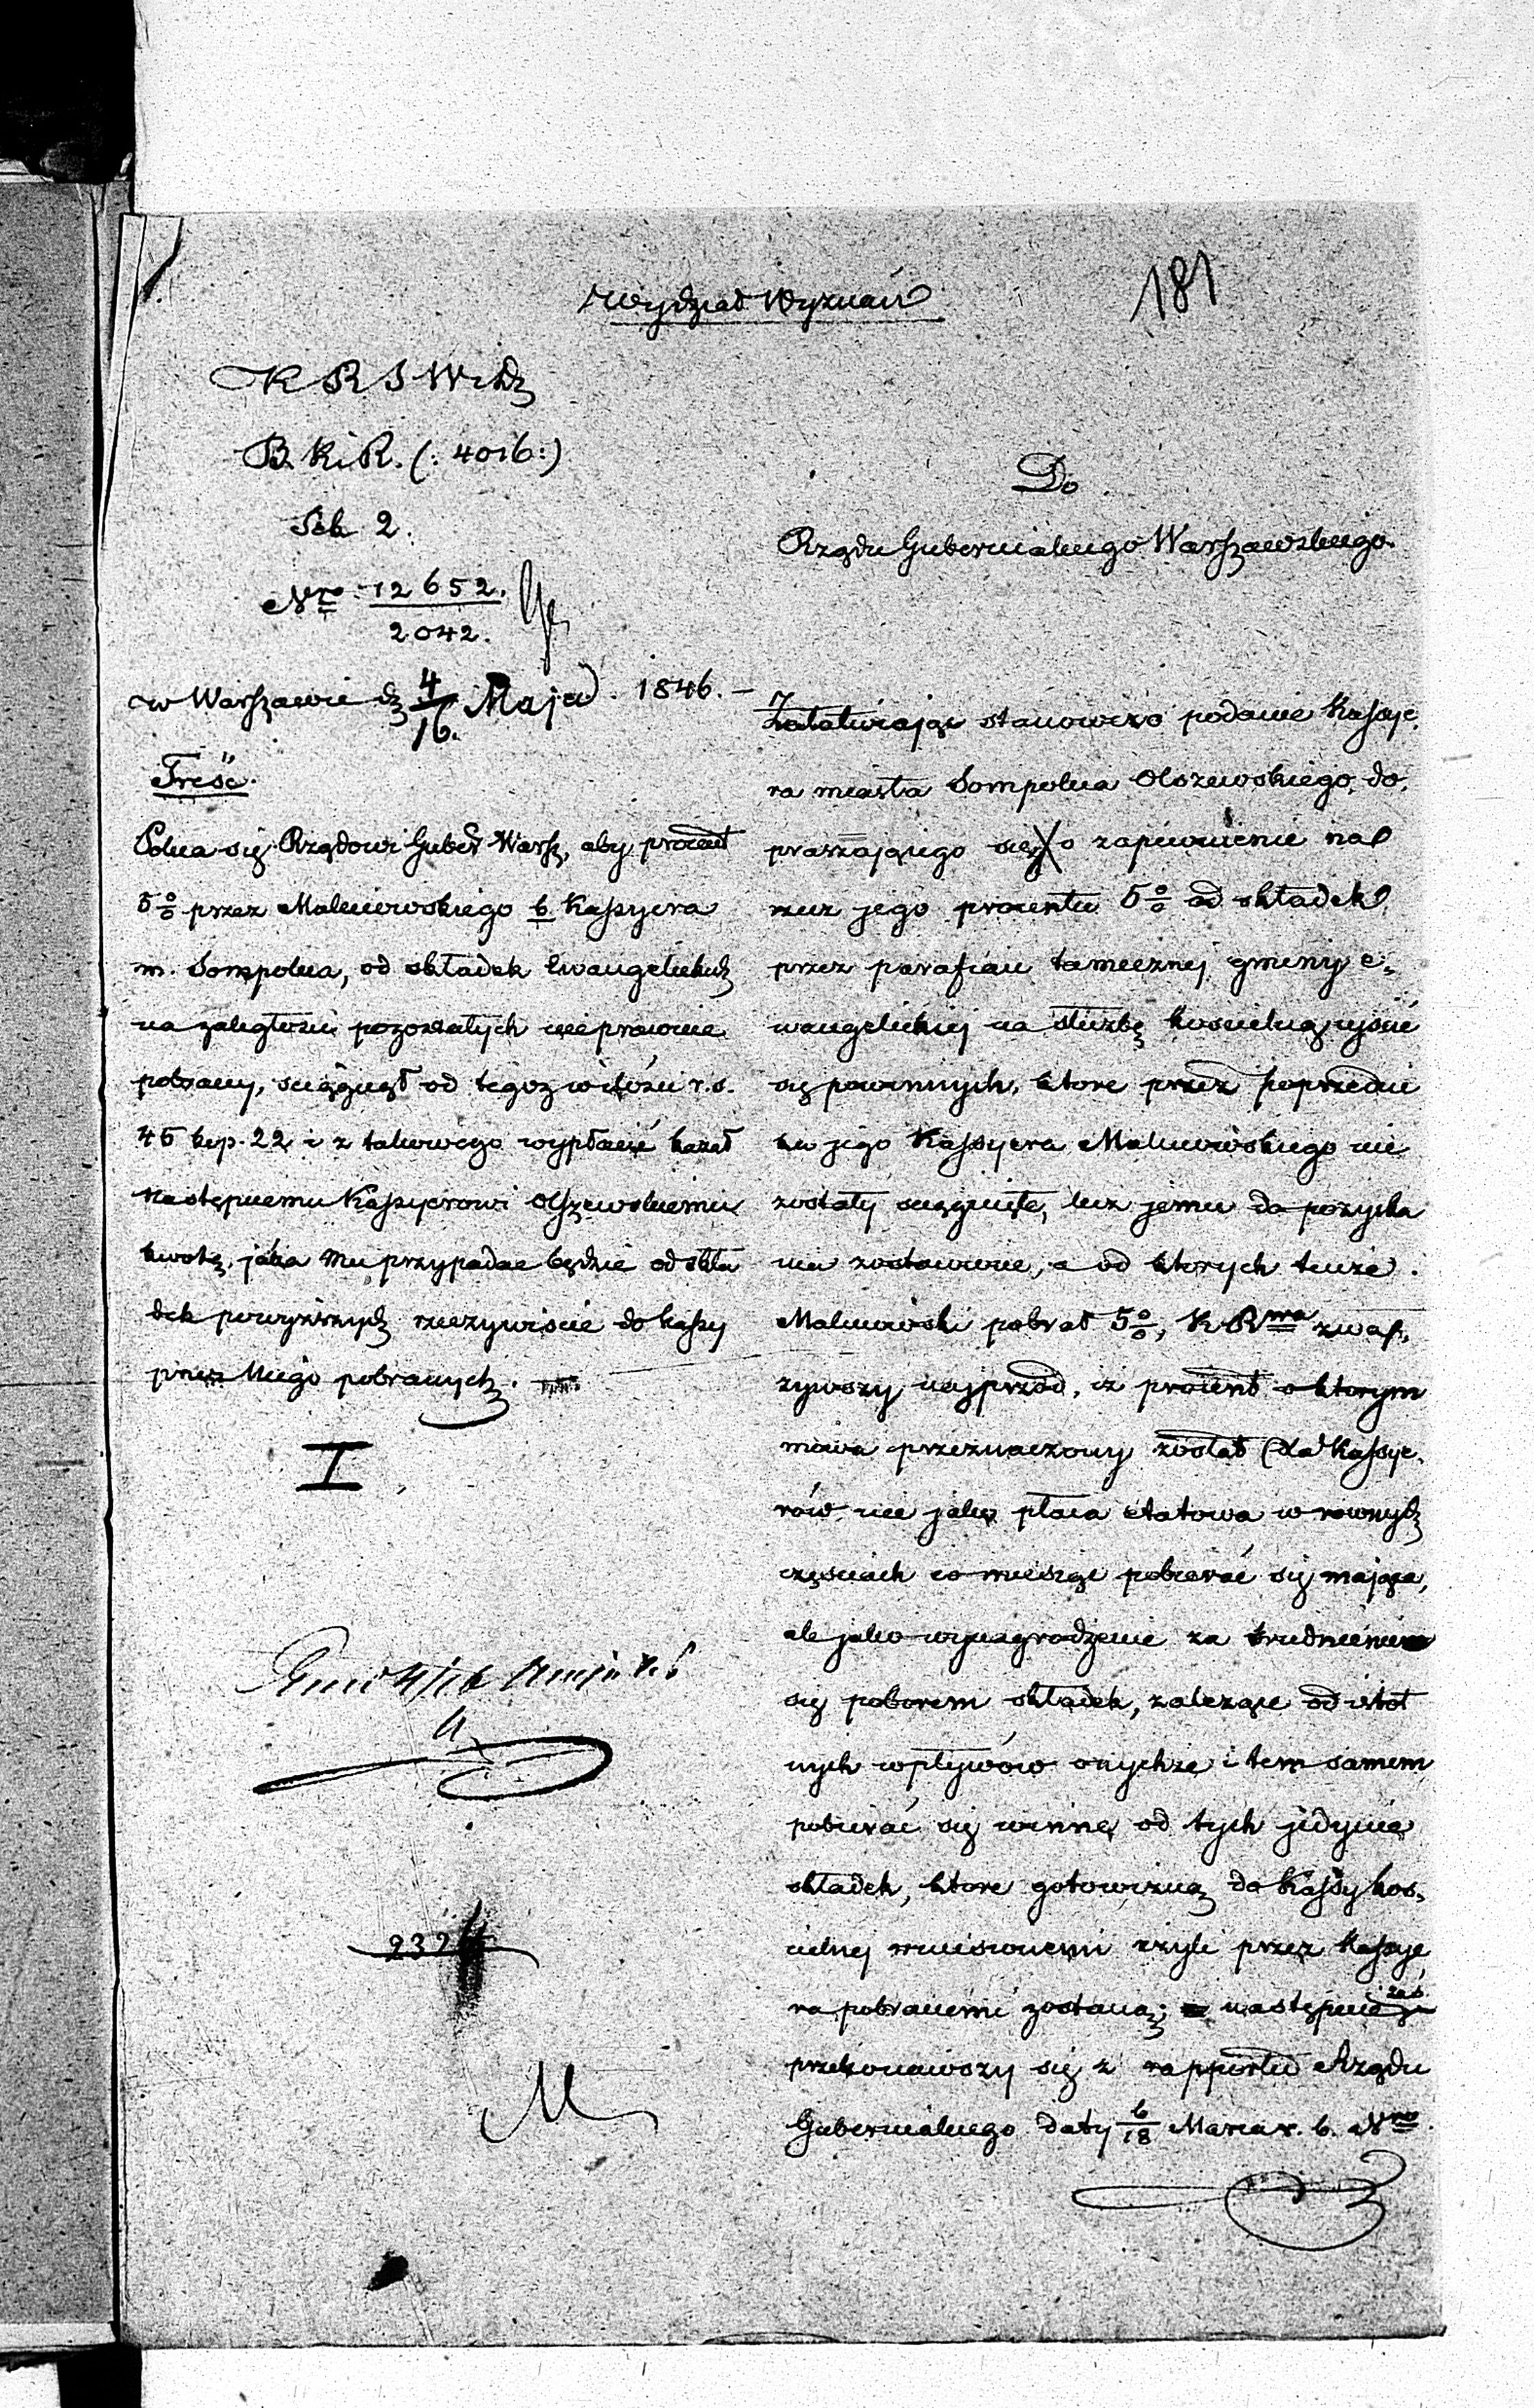 181
Wydział Wyznań
K R S W i D
B. K i R. (: 4016 :)
Sek 2.
Nro 12652.
2042.
w Warszawie d 4/16. Maja 1846. –
Treść.
Poleca się Rządowi Guber Warsz, aby procent
5 o/o przez Malinowskiego b Kassyera
m. Sompolna, od składek Ewangelickich
na zaległości pozostałych nieprawnie
pobrany, ściągnął od tegoż w ilości r.s.
45 kop. 22 i z takowego wypłacić kazał
następnemu Kassyerowi Olszewskiemu
kwotę, jaka mu przypadać będzie od skła
dek powyższych rzeczywiście do kassy
przez Niego pobranych.
I
4/16
232
M
Do
Rządu Gubernialnego Warszawskiego.
Załatwiając stanowczo podanie Kassye,
ra miasta Sompolna Olszewskiego, do,
praszającego się o zapewnienie na
rzecz jego procentu 5 o/o od składek
przez parafian tamecznej gminy e,,
wangelickiej na służbę kościelną uiścić
się powinnych, które przez poprzedni
ka jego Kassyera Malinowskiego nie
zostały ściągnięte, lecz jemu do pozyska
nia zostawione, a od których tenże
Malinowski pobrał 5 o/o, K R wa zwa,,
żywszy najprzód, iż procent o którym
mowa przeznaczony został dla Kassye,
rów nie jako płaca etatowa w równych
częściach co miesiąc pobierać się mająca,
ale jako wynagrodzenie za trudnienie
się poborem składek, zależące od istot
nych wpływów onychże i tem samem
pobierać się winne od tych jedynie
składek, które gotowizną do Kassy kos,
cielnej wniesionemi czyli przez Kassye
ra pobranemi zostaną; następnie zaś
przekonawszy się z rapportu Rządu
Gubernialnego daty 6/18 Marca r. b. Nro